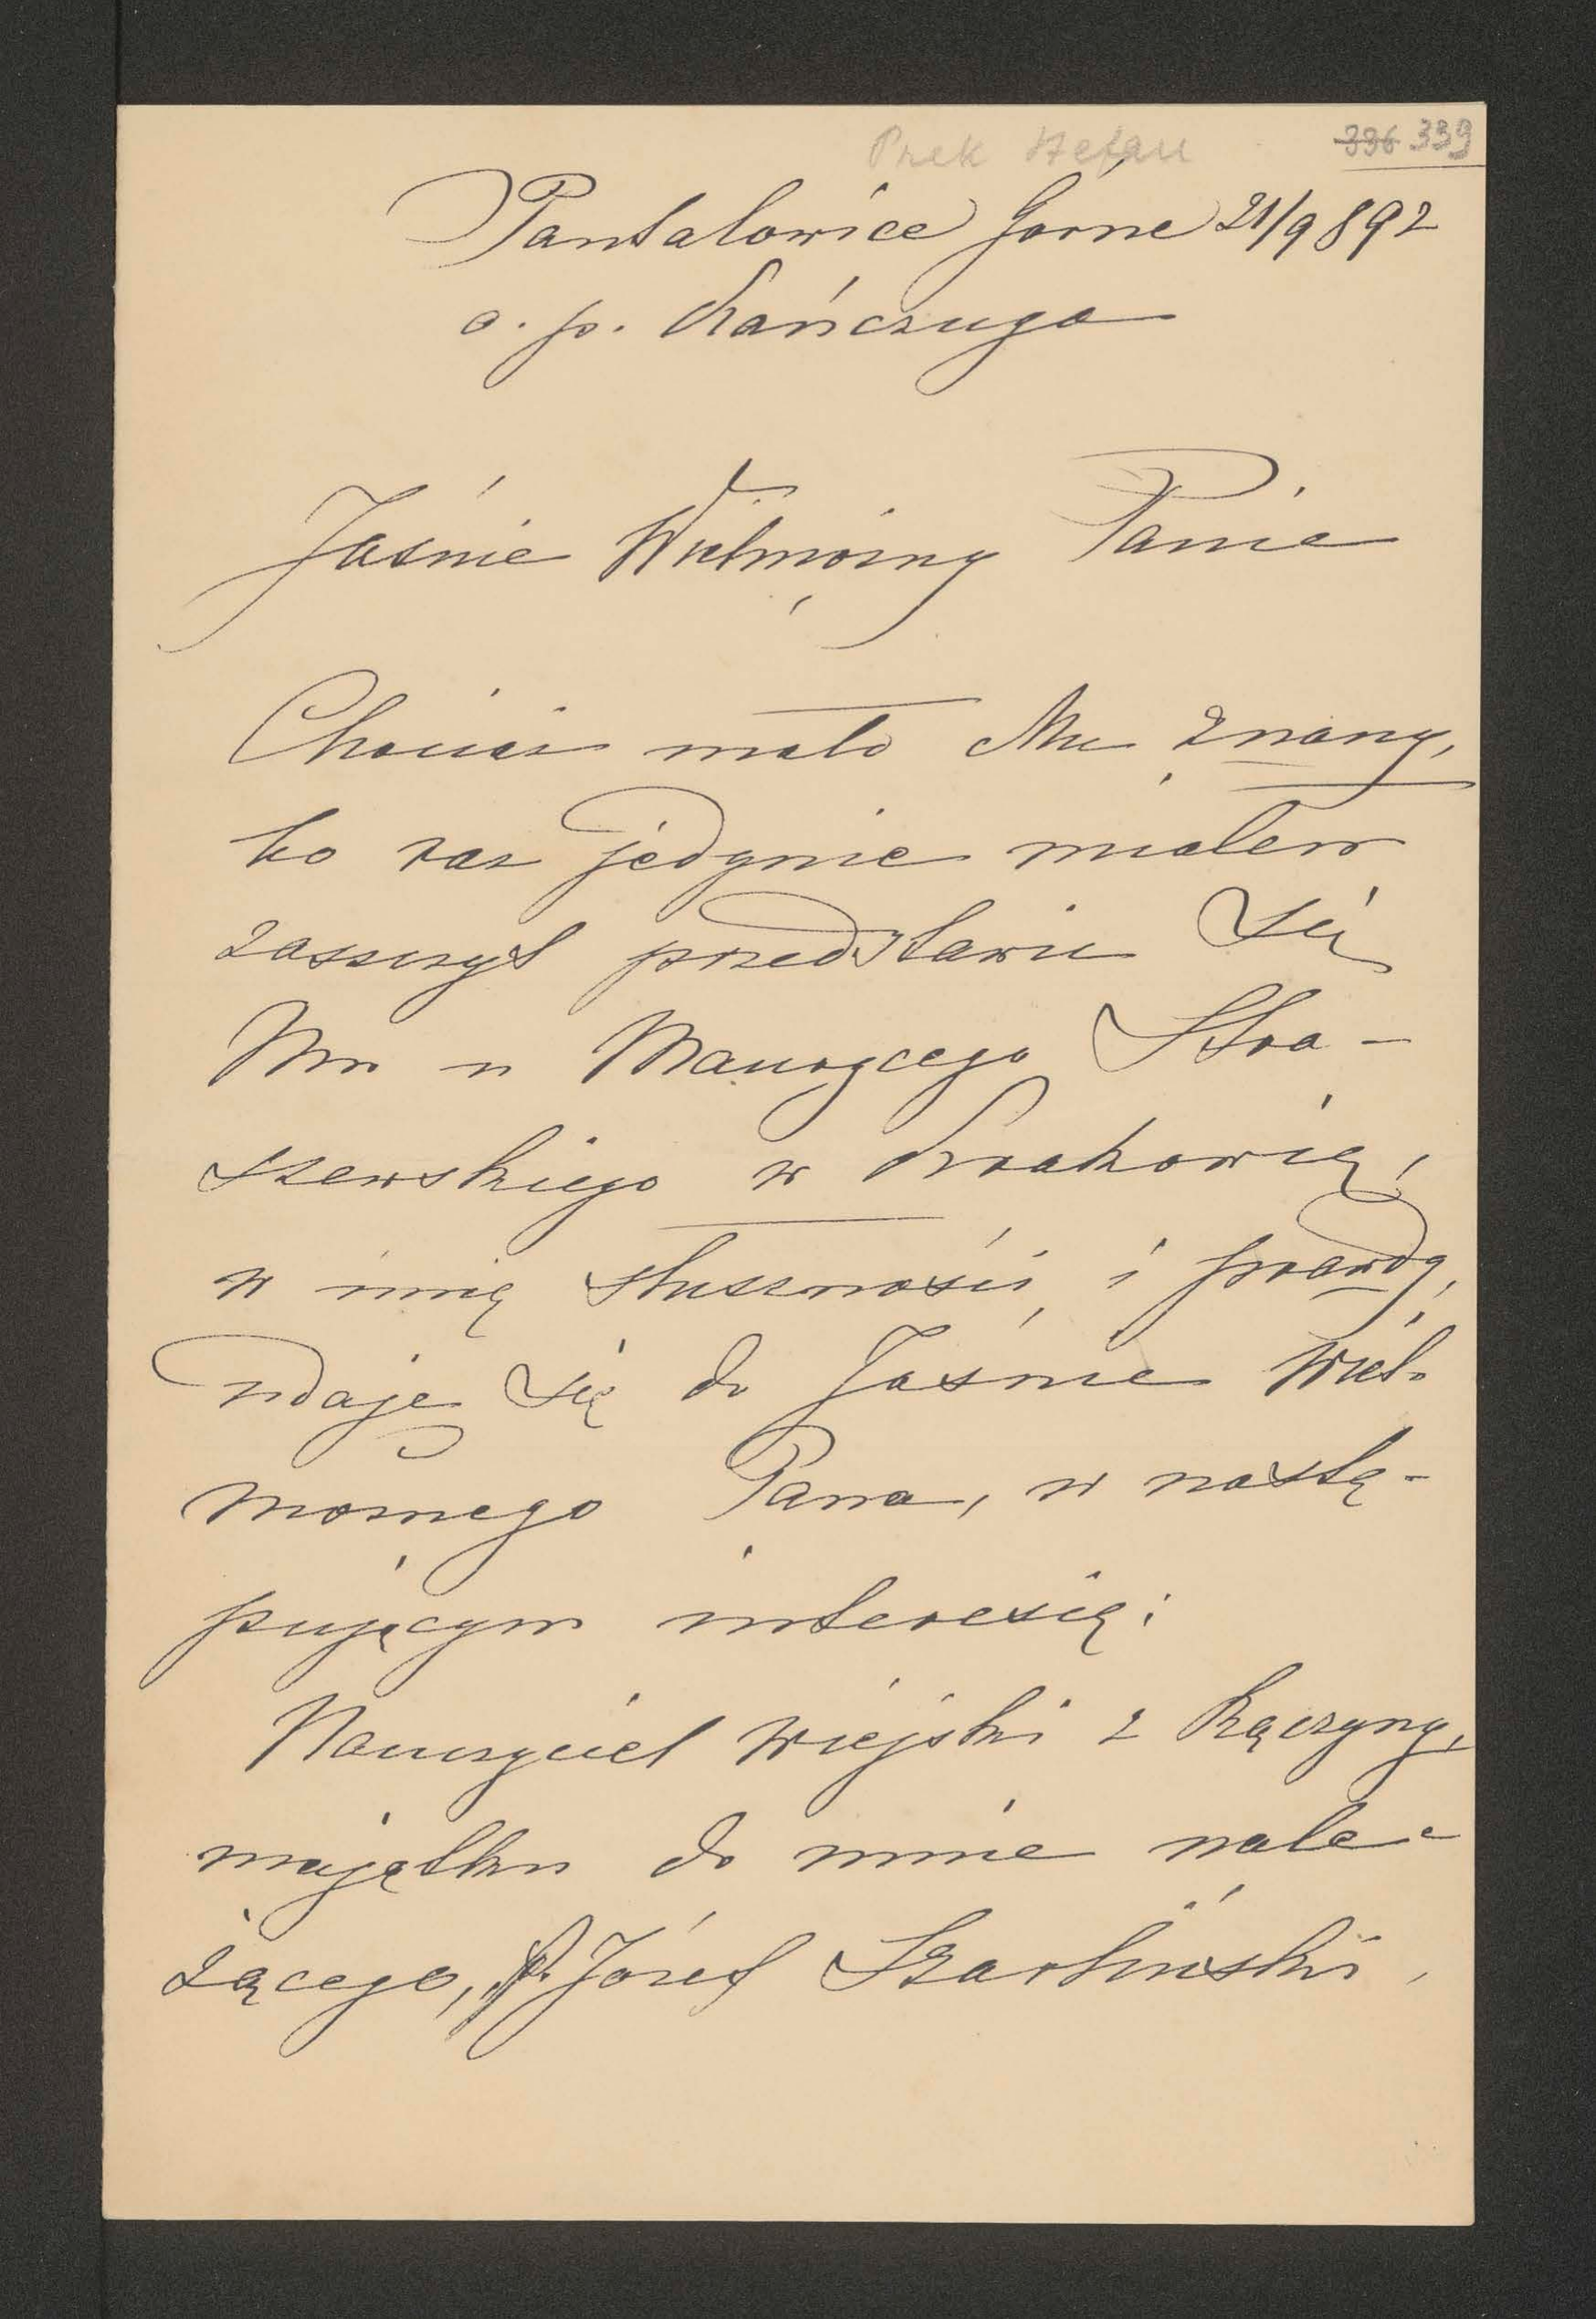 Prek Stefan
336 339
Pantalowice Górne 21/9 892
o. p. Kańczuga
Jaśnie Wielmożny Panie
Chociaż mało Mu znany,
bo raz jedynie miałem
zaszczyt przedstawić Się
Mu u Maurycego Stra-
szewskiego w Krakowie,
w imię słuszności i prawdy,
udaję Się do Jaśnie Wiel-
możnego Pana, w nastę-
pującym interesie:
Nauczyciel wiejski z Rączyny,
majątku do mnie nale-
żącego, p. Józef Szarliński,